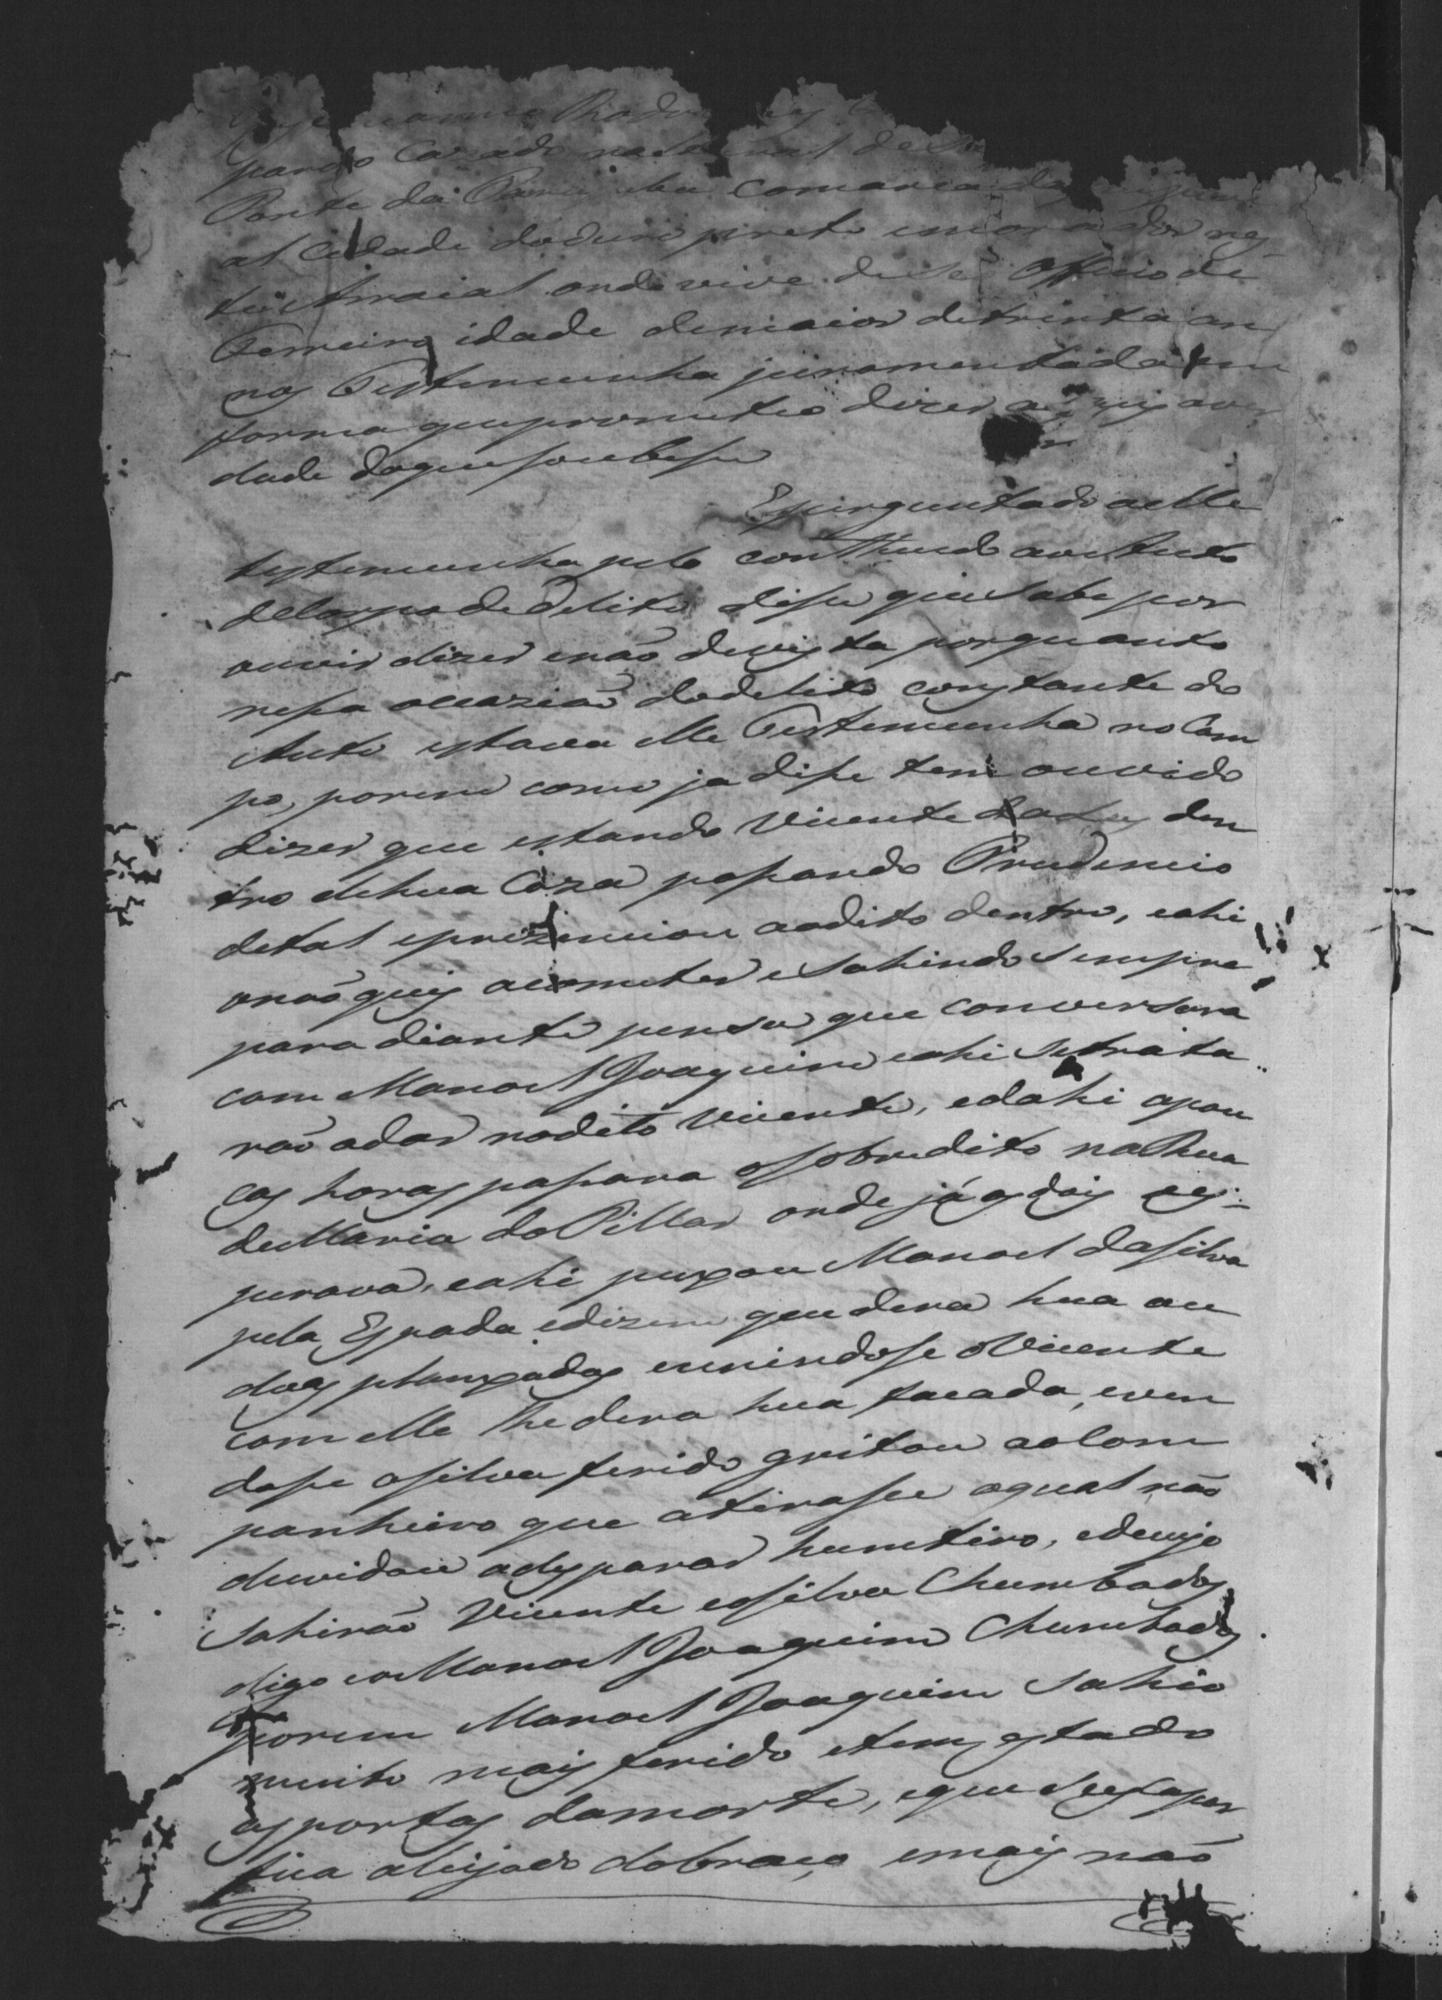 pardo Cazado natural de
Ponte da comarca da
al Cidade do ouro preto emorador nes
te Arraial onde vive de seu Officio de
Ferreiro idade demaior de trinta an
nos Testemunha juramentada em
forma que prometeo dizer a
dade do que soubesse
E perguntado a elle
testemunha pelo conthiudo no Auto
de Corpo de delito disse que sabe por
ouvir dizer enão devista, porquanto
nessa occazião do delito constante do
Auto estava elle Testemunha no Cam
po, porem como ja disse tem ouvido
dizer que estando Vicente den
tro dehua Caza passando Prudencio
de tal eprezenciou aodito dentro, eahi
onão quis acometer esahindo sempre
para diante pensa que conversara
com Manoel Joaquim eahi setrata
rão adar nodito Vicente, edahi apou
cas horas passara osobredito na Rua
de Maria do Pillar onde já os dois es
perava, eahi puxou Manoel da Silva
pela Espada edizem que dera hua ou
duas planxadas eunindose o Vicente
com elle lhe dera hua facada, even
dose o Silva ferido gritou ao Com
panheiro que atirasse oqual não
duvidou adesparar hum tiro, edecujo
sahirão Vicente eo Silva Chumbados
digo eo Manoel Joaquim Chumbados
porem Manoel Joaquim sahio
muito mais ferido etem estado
as portas da morte, eque se escapar
fica aleijado do braço, emais não